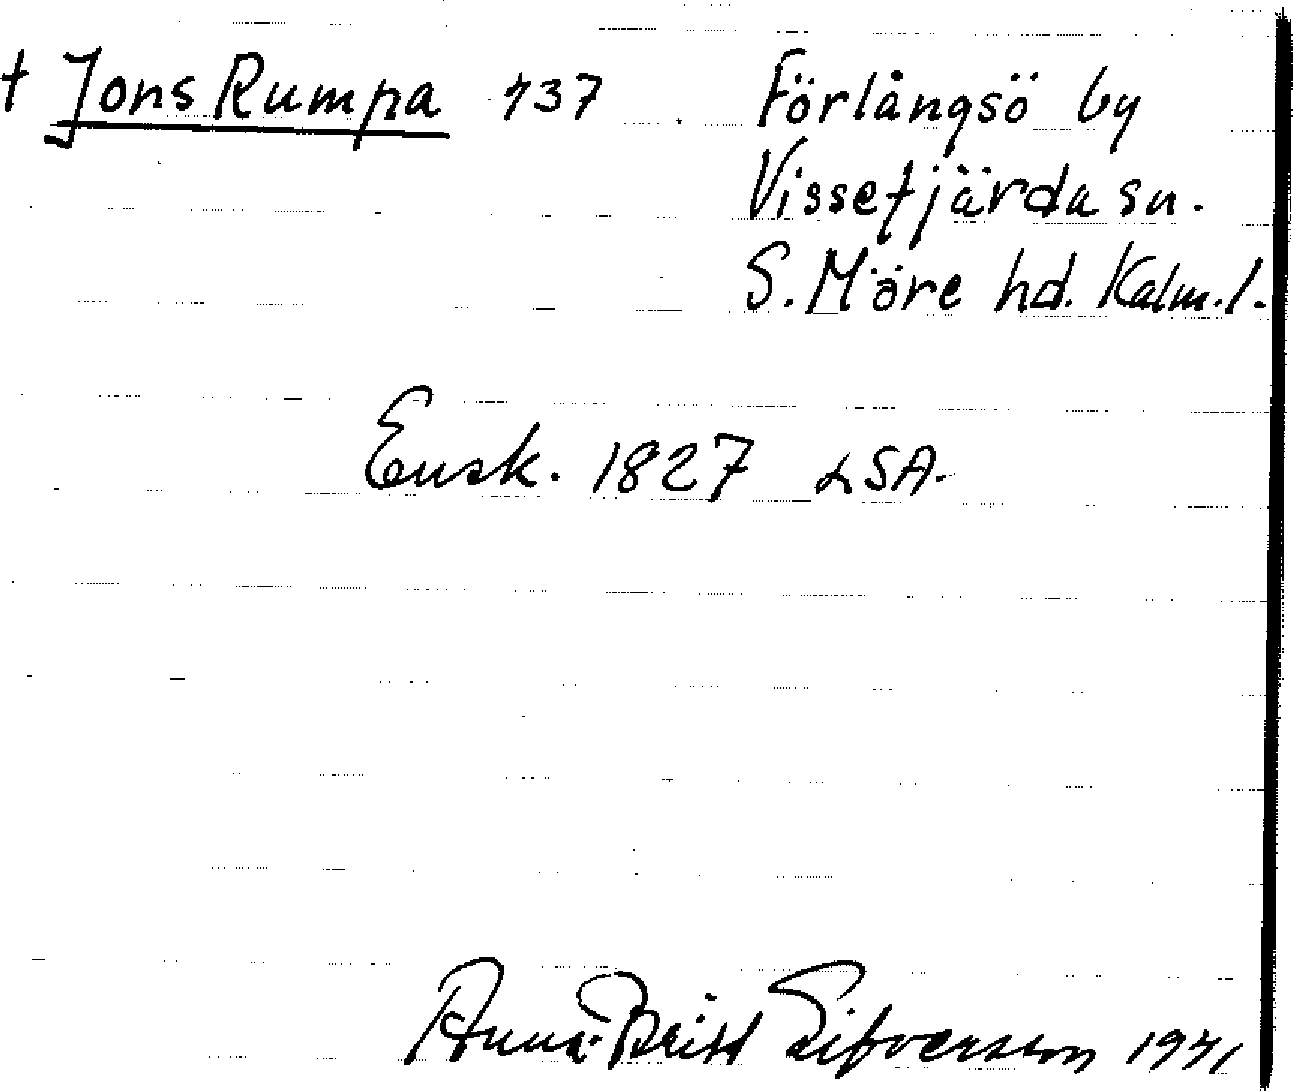 † Jons Rumpa 737 Förlångsö by
Vissefjärda sn.
S. Möre hd. Kalm. l.
Ensk. 1827 LSA.
Anna-Britt Sifversson 1971